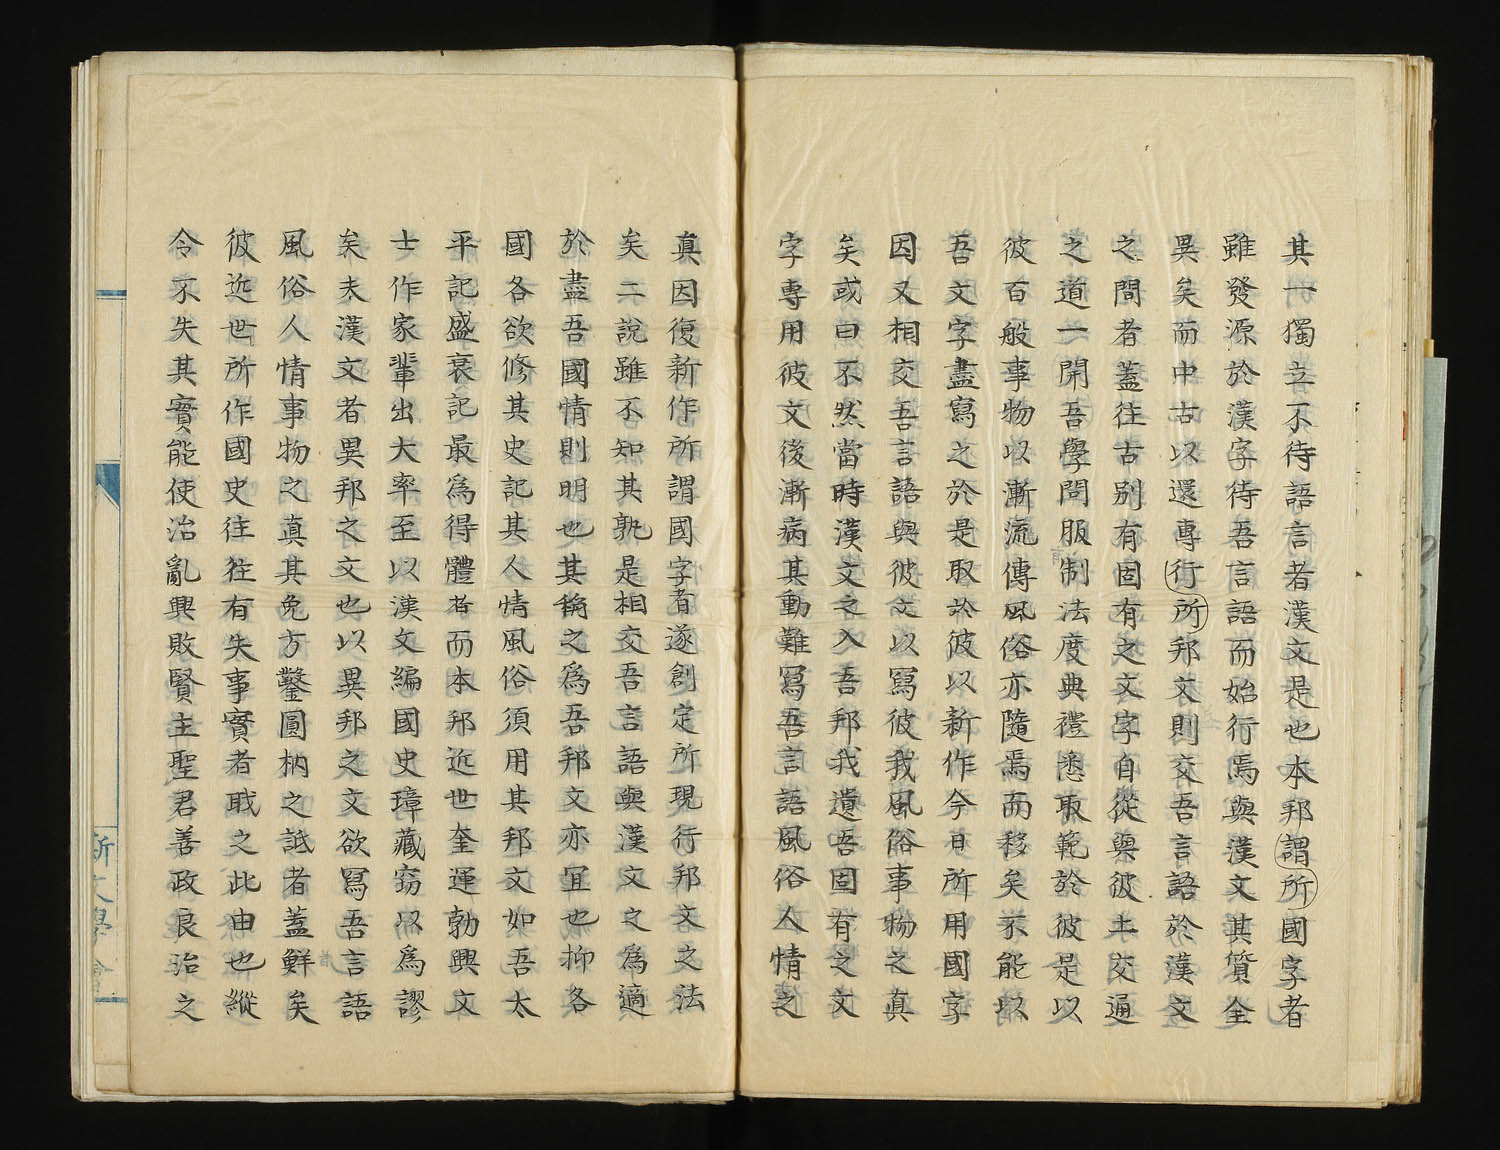 其一獨立不待語言者漢文是也本邦謂所國字者
雖發源於漢字待吾言語而始行焉與漢文其質全
異矣而中古以還專行所邦文則交吾言語於漢文
之間者蓋往古別有固有之文字自從與彼土交通
之道一開吾學問服制法度典禮悉取範於彼是以
彼百般事物以漸流傳風俗亦隨焉而移矣不能以
吾文字盡寫之於是取於彼以新作今日所用國字
因又相交吾言語與彼文以寫彼我風俗事物之真
矣或曰不然當時漢文之入吾邦我遺吾固有之文
字專用彼文後漸病其動難寫吾言語風俗人情之
真因復新作所謂國字者遂創定所現行邦文之法
矣二說雖不知其孰是相交吾言語與漢文之為適
於盡吾國情則明也其稱之為吾邦文亦宜也抑各
國各欲修其史記其人情風俗須用其邦文如吾太
平記盛衰記最為得體者而本邦近世奎運勃興文
士作家輩出大率至以漢文編國史璋藏竊以為謬
矣夫漢文者異邦之文也以異邦之文欲寫吾言語
風俗人情事物之真其免方鑿圓枘之詆者蓋鮮矣
彼近世所作國史往往有失事實者職之此由也縱
令不失其實能使治亂興敗賢主聖君善政良治之
新文學會